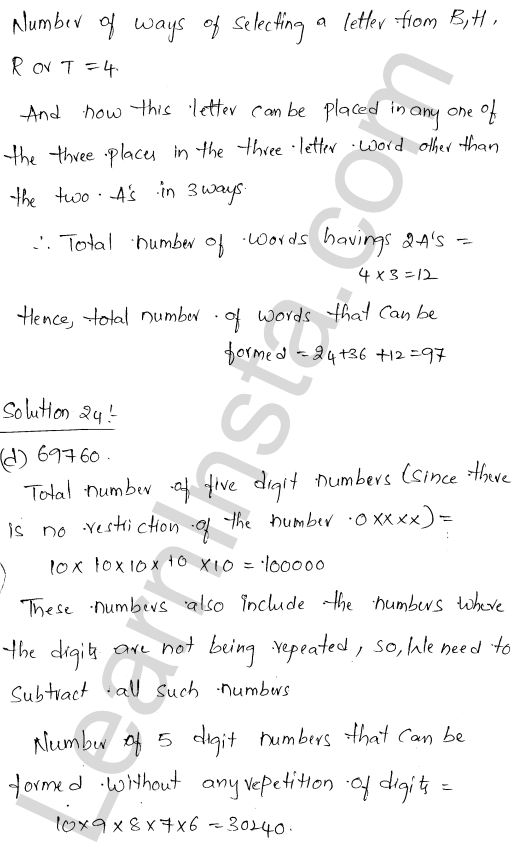 Number of ways of selecting a letter from B,H,
R or T = 4.
And now this letter can be placed in any one of
the three places in the three letter word other than
the two A's in 3 ways.
∴ Total number of words havings 2A's =
4 x 3 = 12
Hence, total number of words that can be
formed = 24+36+12 = 97
Solution 24:-
(d) 69760.
Total number of five digit numbers (since there
is no restiction of the number 0xxxx) =
) 10 x 10 x 10 x 10 x 10 = 100000
These numbers also include the numbers where
the digits are not being repeated, so, We need to
subtract all such numbers
Number of 5 digit numbers that can be
formed without any repetition of digits =
10 x 9 x 8 x 7 x 6 = 30240.
LearnInsta.com